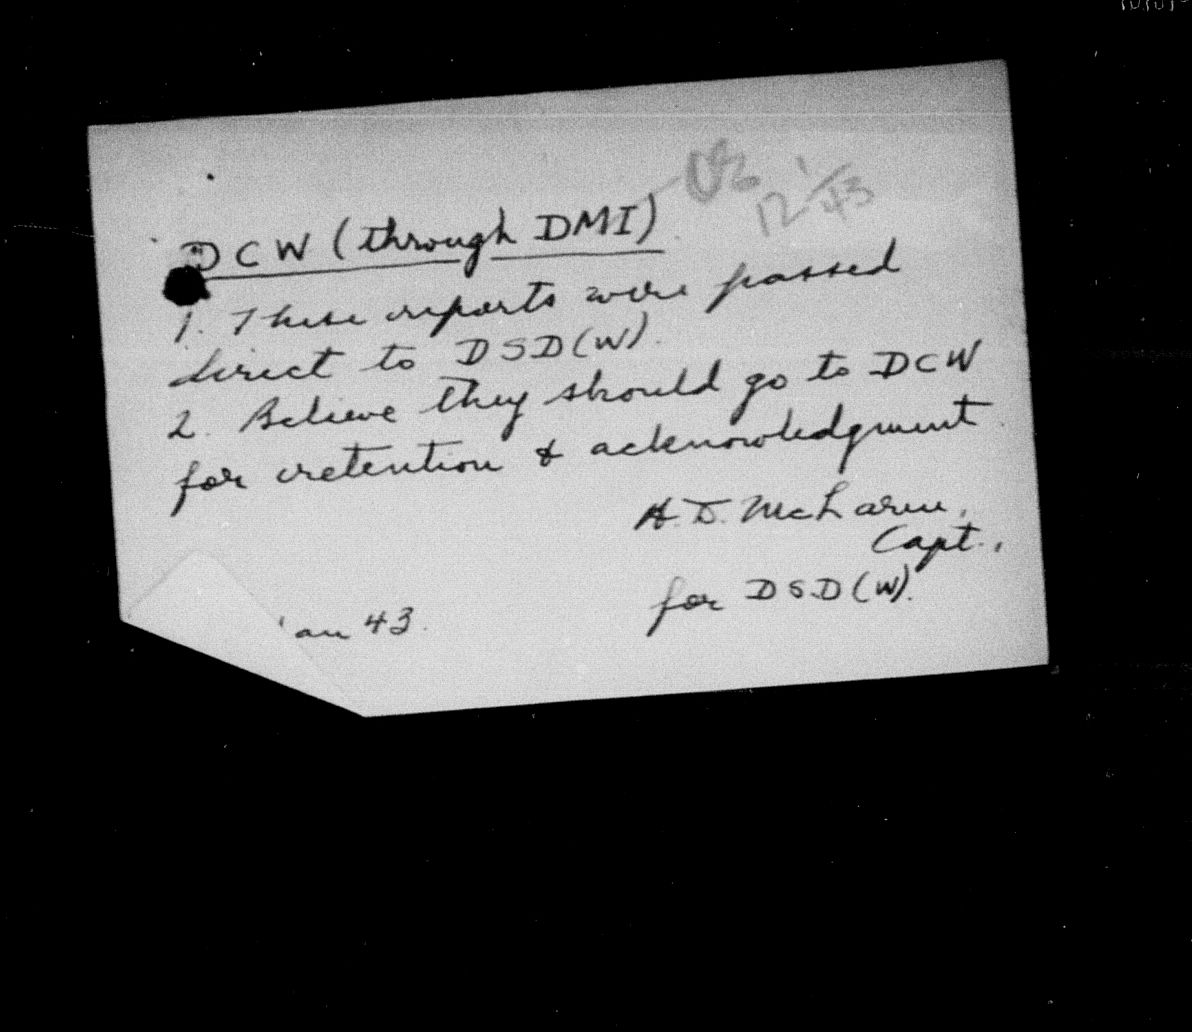 DCW (through DMI)
12 1/43
1. These reports were passed
direct to DSD(W).
2. Believe they should go to DCW
for retention & acknowledgment
A.D. McLarin,
Capt.,
for DSD(W).
43.